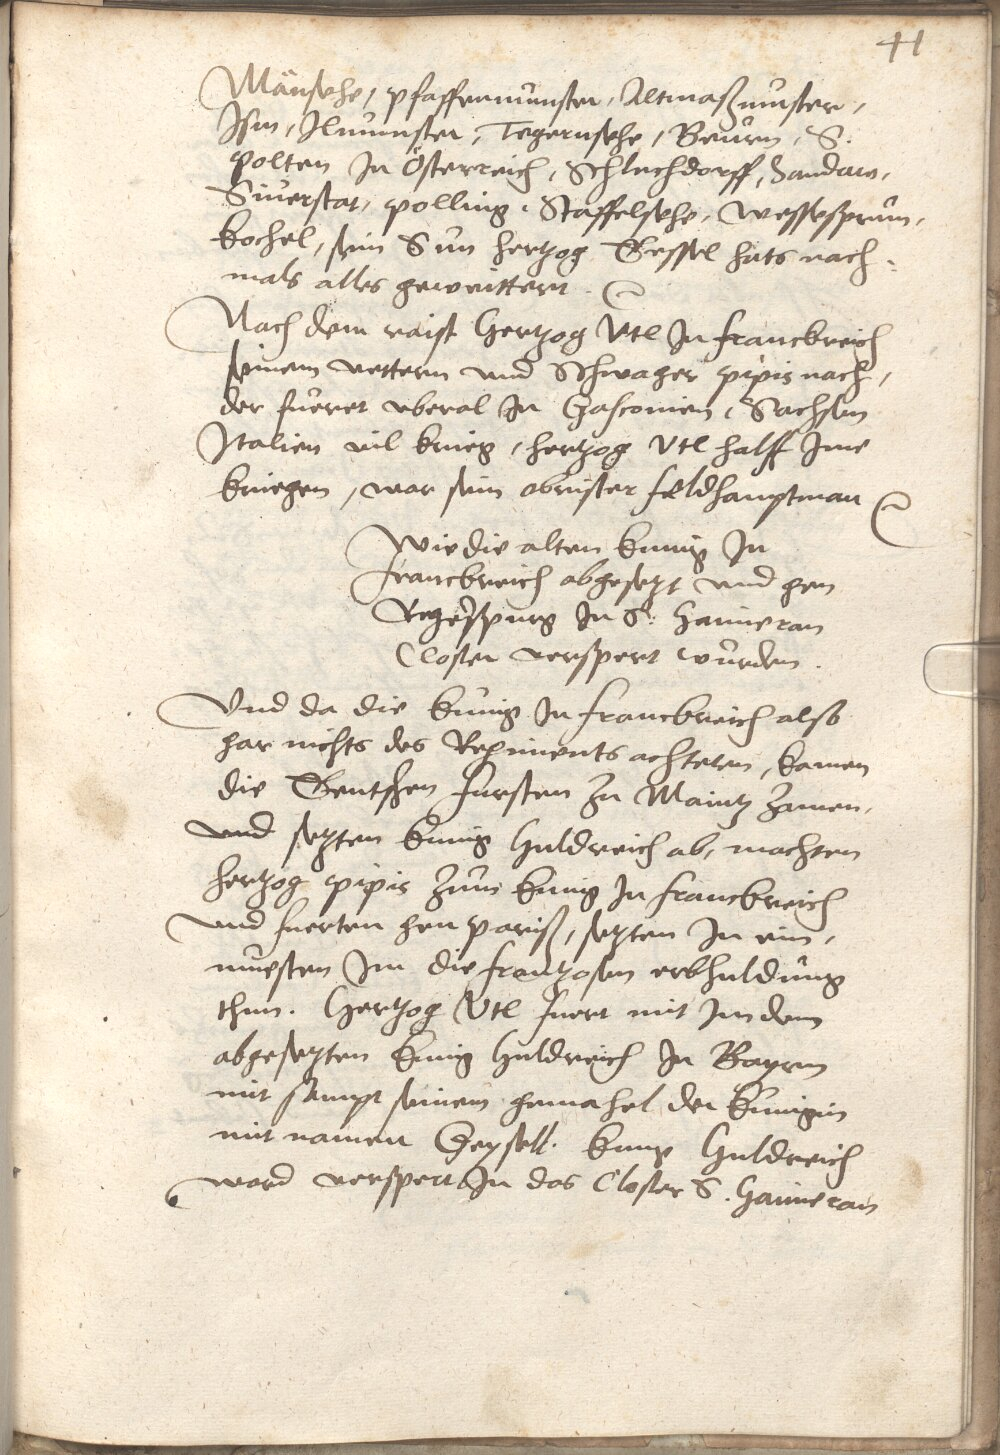 41
Mänsehe, pfaffenmünster, Altmaßmünster,
Isen, Ilmünster, Tegernsehe, Beürn, S.
polten In Österreich, Schlechdorff, Sandaw,
Siverstat, polling, Staffelsehe, Wessesprün,
kochel, sein Sun hertzog Tessel hats nach-
mals alles geweittert.
Nach dem raist Hertzog Vtl In franckreich
seinem vettern vnd Schwager pipis nach,
der fueret vberal In Gasconien, Sachsen
Italien vil krieg, hertzog Vtl halff Ime
kriegen, war sein obrister feldhauptman
Wie die alten kunig In
franckreich abgesetzt vnd gen
Regenspurg In S. Haimeran
Closter verspert wurden.
Vnd da die künig In franckreich also
gar nichts des Regiments achteten, kamen
die Teutschen fursten zu Maintz zamen,
vnd setzten kunig Huldreich ab, machten
hertzog pipis zum kunig In franckreich
vnd fuerten gen pariß, setzten In ein,
muesten Im die frantzosen erbhuldung
thun. Hertzog Vtl fuert mit Im dem
abgesetzten kunig Huldreich In Bayrn
mit sampt seinem gemahel der kunigin
mit namen Geysell. kunig Huldreich
ward verspert In das Closter S. Haimeran